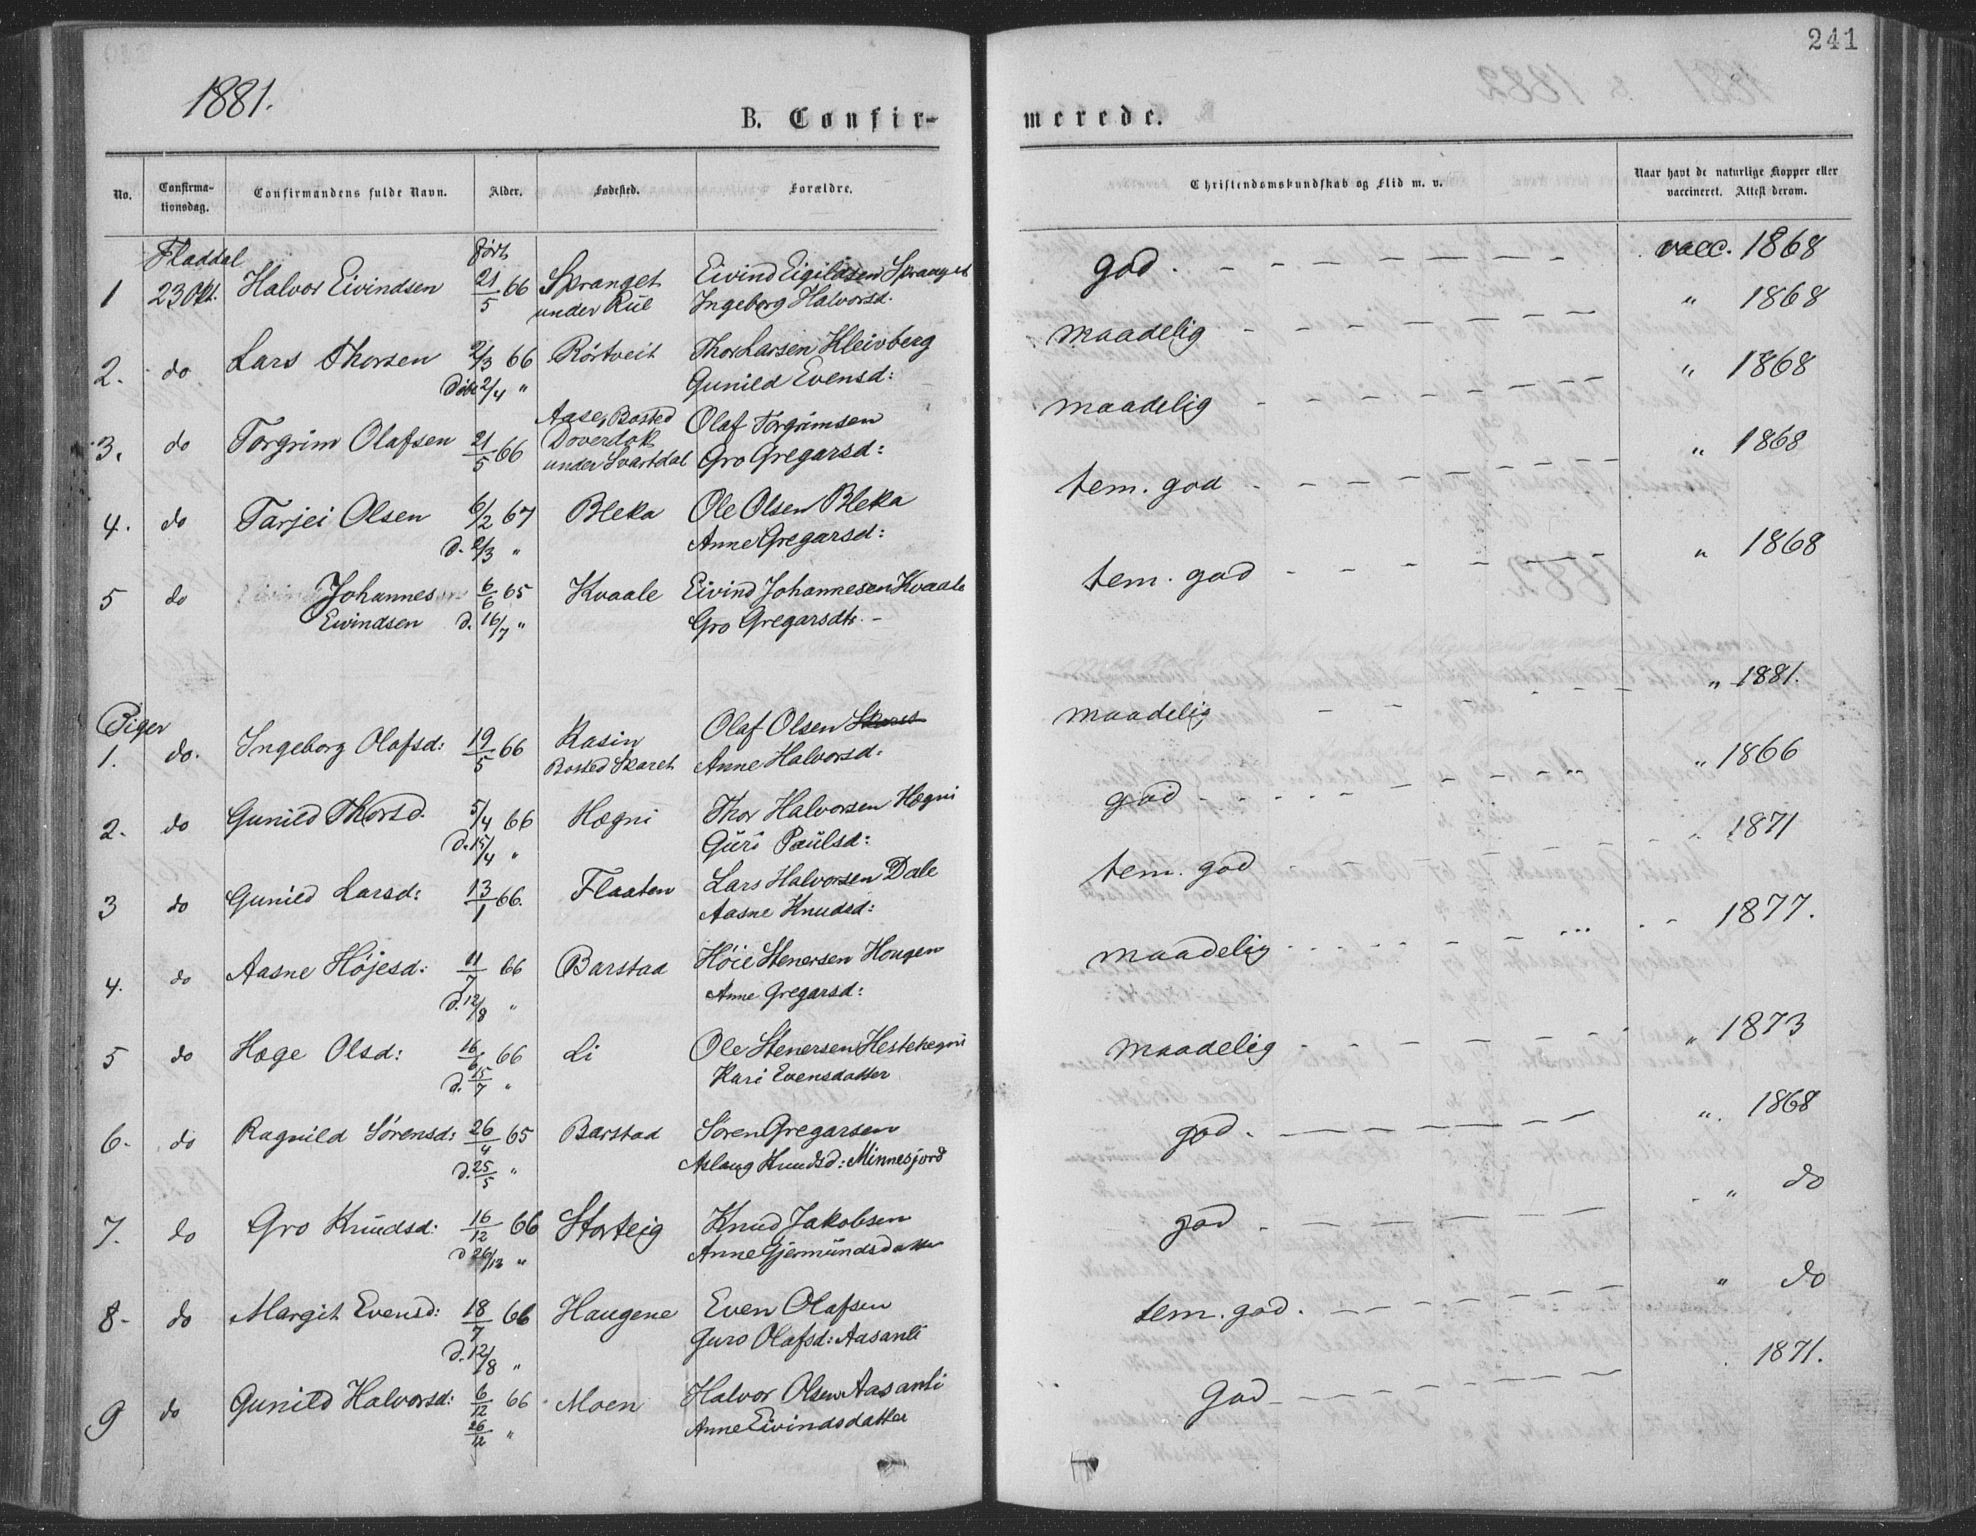 241
1881.
B. Confir- merede.
No. Confirma-tionsdag. Confirmandens fulde Navn. Alder. Fødested. Forældre. Christendomskundskab og Flid m. v. Naar havt de naturlige Kopper eller vaccineret. Attest derom.
Fladdal født
1 23 Okt. Halvor Eivindsen 21/5 66 Spranget Eivind Eigildsen Spranget god. vacc. 1868
under Rue Ingeborg Halvorsd.
2. do Lars Thorsen 2/3 66 Rørtveit Thor Larsen Kleivberg maadelig " 1868
Døbt 2/4 " Gunild Evensd:
3. do Torgrim Olafsen 21/5 66 Aase, Bosted Olaf Torgrimsen maadelig " 1868
Doverdok
under Svartdal Gro Gregarsd:
4. do Tarjei Olsen 6/2 67 Bleka Ole Olsen Bleka tem. god " 1868
d. 2/3 " Anne Gregarsd:
5 do Johannes 6/6 65 Kvaale Eivind Johannesen Kvaale tem. god " 1868
Eivindsen d. 16/7 " Gro Gregarsdtr. -
Piger
1. do. Ingeborg Olafsd: 19/5 66 Rasin Olaf Olsen Skaret maadelig " 1881.
Bosted Skaret Anne Halvorsd:
2. do Gunild Thorsd. 5/4 66 Hægni Thor Halvorsen Hægni god " 1866
d. 15/4 " Guro Paulsd:
3 do Gunild Larsd: 13/1 66. Flaaten Lars Halvorsen Dale tem. god 1871
Aasne Knudsd:
4. do Aasne Højesd: 11/7 66 Barstad Høie Stenersen Hougen maadelig 1877.
d. 12/8 " Anne Gregarsd:
5 do Hæge Olsd: 16/6 66 Li Ole Stenersen Hestehegni maadelig " 1873
d. 15/7 " Kari Evensdatter
6. do Ragnild Sørensd: 26/4 65 Barstad Søren Gregarsen god. " 1868
d. 25/5 " Aslaug Knudsd: Minnesjord
7. do Gro Knudsd: 16/12 66 Storteig Knud Jakobsen god " do
d 26/12 " Anne Gjermundsdatter
8. do Margit Evensd: 18/7 66 Haugene Even Olafsen tem. god. " do
d. 12/8 " Guro Olafsd: Aasanli
9 do Gunild Halvorsd: 6/12 66 Moen Halvor Olsen Aasanli God 1871.
26/12 " Anne Eivindsdatter